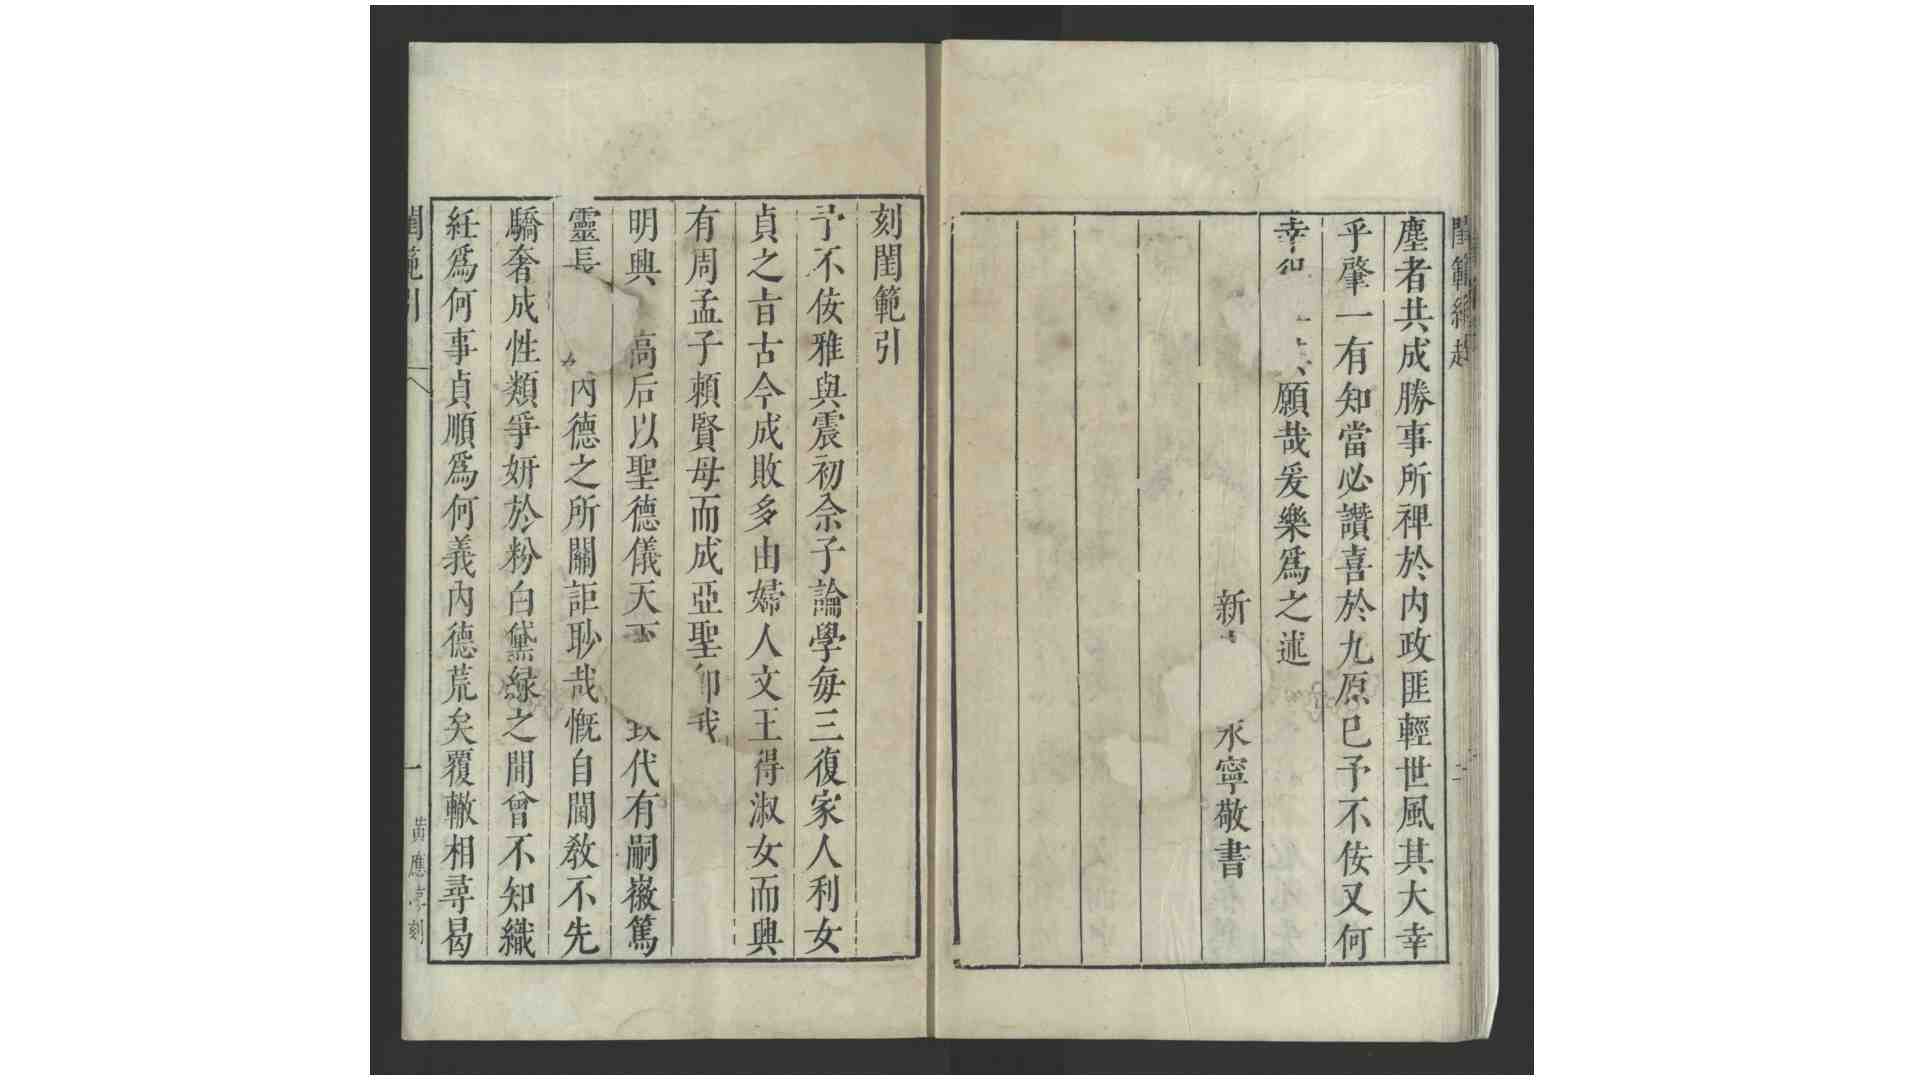 閨範
塵者共成勝事所裨於內政匪輕世風其大幸
乎肇一有知當必讚喜於九原已予不佞又何
幸 願哉爰樂為之述
新 永寧敬書
刻閨範引
予不佞雅與震初佘子論學每三復家人利女
貞之旨古今成敗多由婦人文王得淑女而興
有周孟子賴賢母而成亞聖卬我
明興 高后以聖德儀天下 代有嗣徽篤
靈長 內德之所關詎眇哉慨自閫教不先
驕奢成性類爭妍於粉白黛綠之間曾不知織
紝為何事貞順為何義內德荒矣覆轍相尋曷
閨範引
一
黃應 刻